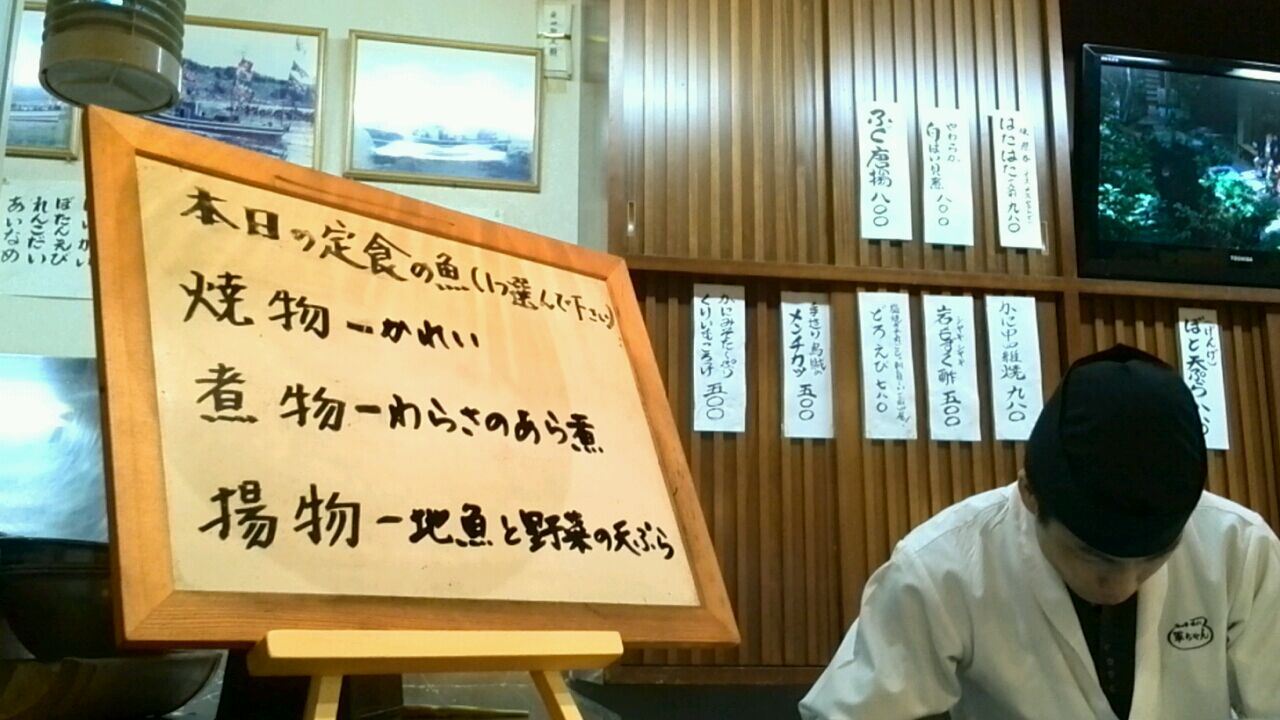 本日の定食の魚(1つ選んで下さい)
焼物ーかれい
煮物ーわらさのあら煮
揚物ー地魚と野菜の天ぷら
ぼたんえび
れんこだい
あいなめ
はたはた 九八〇
やわらか
白ばい貝煮
八〇〇
ふぐ唐揚 八〇〇
(げんげ)
ぼと天ぷら
かに甲羅焼 九八〇
シャキシャキ
岩もずく酢 五〇〇
とろえび 七八〇
手造り烏賊の
メンチカツ 五〇〇
かにみそたっぷり
くりぃむころっけ 五〇〇
TOSHIBA